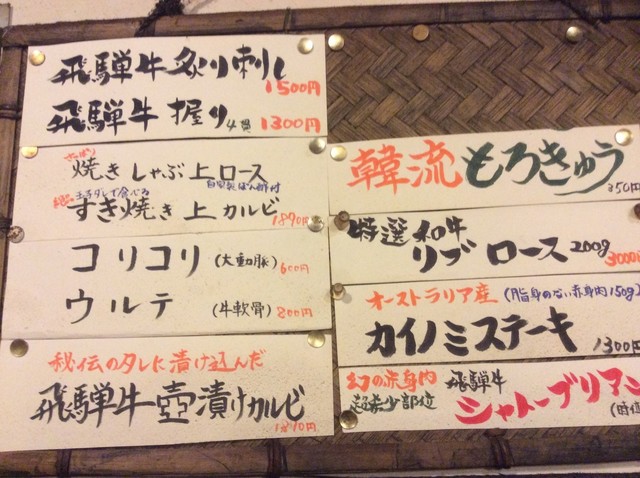 飛騨牛 炙り刺し
1500円
飛騨牛 握り 4貫 1300円
さっぱり
焼きしゃぶ 上ロース
自家製ぽん酢付
玉子ダレで食べる
すき焼き 上カルビ
1890円
コリコリ (大動脈) 600円
ウルテ (牛軟骨) 800円
秘伝のタレに漬け込んだ
飛騨牛 壺漬けカルビ
韓流もろきゅう
350円
特選 和牛
リブロース 200g
3000円
オーストラリア産 (脂身のない赤身肉150g)
カイノミステーキ
1300円
幻の赤身肉 飛騨牛
超希少部位 シャトーブリアン
(時価